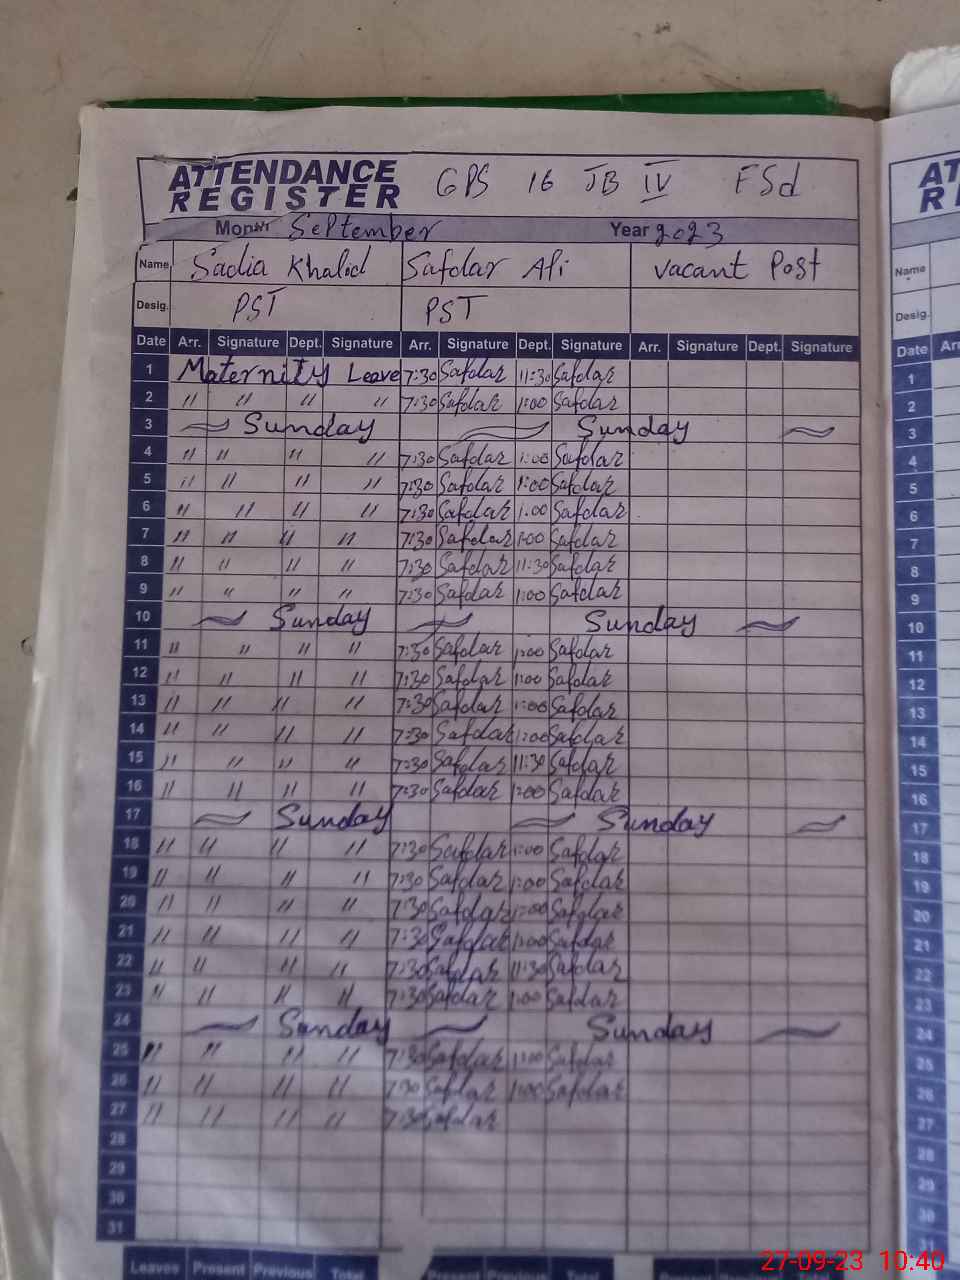 ATTENDANCE REGISTER GPS 16 JB IV FSd
Month September Year 2023
Name Sadia Khalid Safdar Ali Vacant Post
Desig. PST PST
Date Arr. Signature Dept. Signature Arr. Signature Dept. Signature Arr. Signature Dept. Signature
1 Maternity Leave 7:30 Safdar 11:30 Safdar
2 " " " " 7:30 Safdar 1:00 Safdar
3 Sunday Sunday
4 " " " " 7:30 Safdar 1:00 Safdar
5 " " " " 7:30 Safdar 1:00 Safdar
6 " " " " 7:30 Safdar 1:00 Safdar
7 " " " " 7:30 Safdar 1:00 Safdar
8 " " " " 7:30 Safdar 11:30 Safdar
9 " " " " 7:30 Safdar 1:00 Safdar
10 Sunday Sunday
11 " " " " 7:30 Safdar 1:00 Safdar
12 " " " " 7:30 Safdar 1:00 Safdar
13 " " " " 7:30 Safdar 1:00 Safdar
14 " " " " 7:30 Safdar 1:00 Safdar
15 " " " " 7:30 Safdar 11:30 Safdar
16 " " " " 7:30 Safdar 1:00 Safdar
17 Sunday Sunday
18 " " " " 7:30 Safdar 1:00 Safdar
19 " " " " 7:30 Safdar 1:00 Safdar
20 " " " " 7:30 Safdar 1:00 Safdar
21 " " " " 7:30 Safdar 1:00 Safdar
22 " " " " 7:30 Safdar 11:30 Safdar
23 " " " " 7:30 Safdar 1:00 Safdar
24 Sunday Sunday
25 " " " " 7:30 Safdar 1:00 Safdar
26 " " " " 7:30 Safdar 1:00 Safdar
27 " " " " 7:30 Safdar
28
29
30
31
Leaves Present Previous Total
Name
Desig.
Date
1
2
3
4
5
6
7
8
9
10
11
12
13
14
15
16
17
18
19
20
21
22
23
24
25
26
27
28
29
30
31
27-09-23 10:40